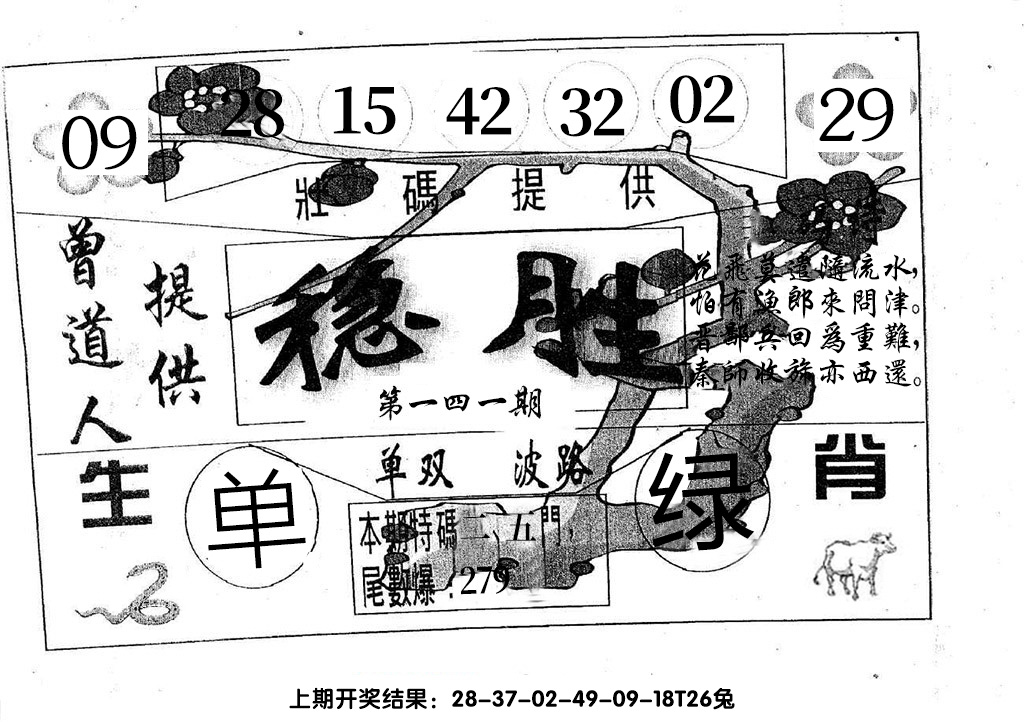 09 28 15 42 32 02 29
壯碼提供
曾道人
提供
稳胜
第一四一期
花飛莫遣隨流水，
怕有漁郎來問津。
晋鄙兵回爲重難，
秦師收旆亦西還。
单双 波路
生肖
单
绿
本期特碼二、五門，
尾數爆：279
上期开奖结果：28-37-02-49-09-18T26兔